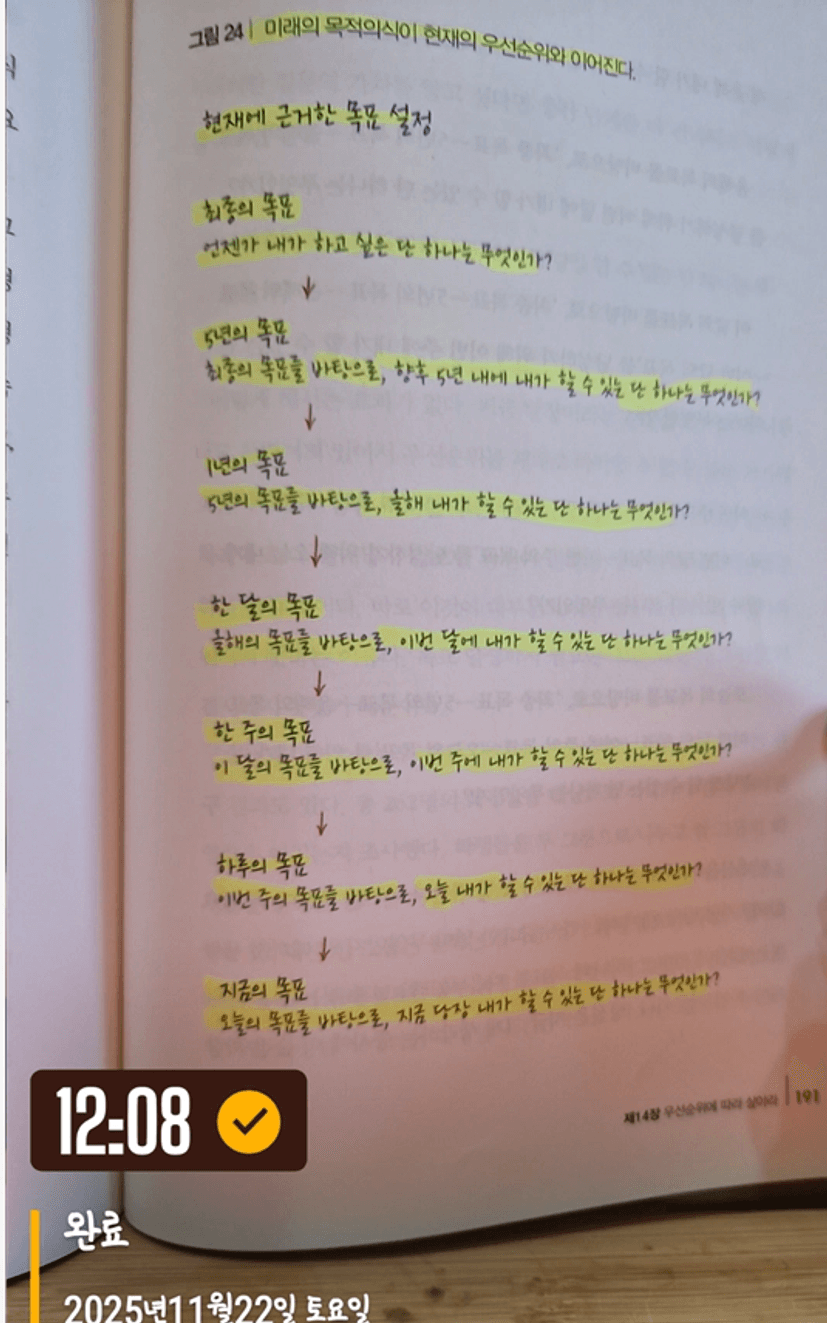 그림 24 | 미래의 목적의식이 현재의 우선순위와 이어진다.
현재에 근거한 목표 설정
최종의 목표
언젠가 내가 하고 싶은 단 하나는 무엇인가?
↓
5년의 목표
최종의 목표를 바탕으로, 향후 5년 내에 내가 할 수 있는 단 하나는 무엇인가?
↓
1년의 목표
5년의 목표를 바탕으로, 올해 내가 할 수 있는 단 하나는 무엇인가?
↓
한 달의 목표
올해의 목표를 바탕으로, 이번 달에 내가 할 수 있는 단 하나는 무엇인가?
↓
한 주의 목표
이 달의 목표를 바탕으로, 이번 주에 내가 할 수 있는 단 하나는 무엇인가?
↓
하루의 목표
이번 주의 목표를 바탕으로, 오늘 내가 할 수 있는 단 하나는 무엇인가?
↓
지금의 목표
오늘의 목표를 바탕으로, 지금 당장 내가 할 수 있는 단 하나는 무엇인가?
제14장 우선순위에 따라 살아라 | 191
12:08
완료
2025년11월22일 토요일